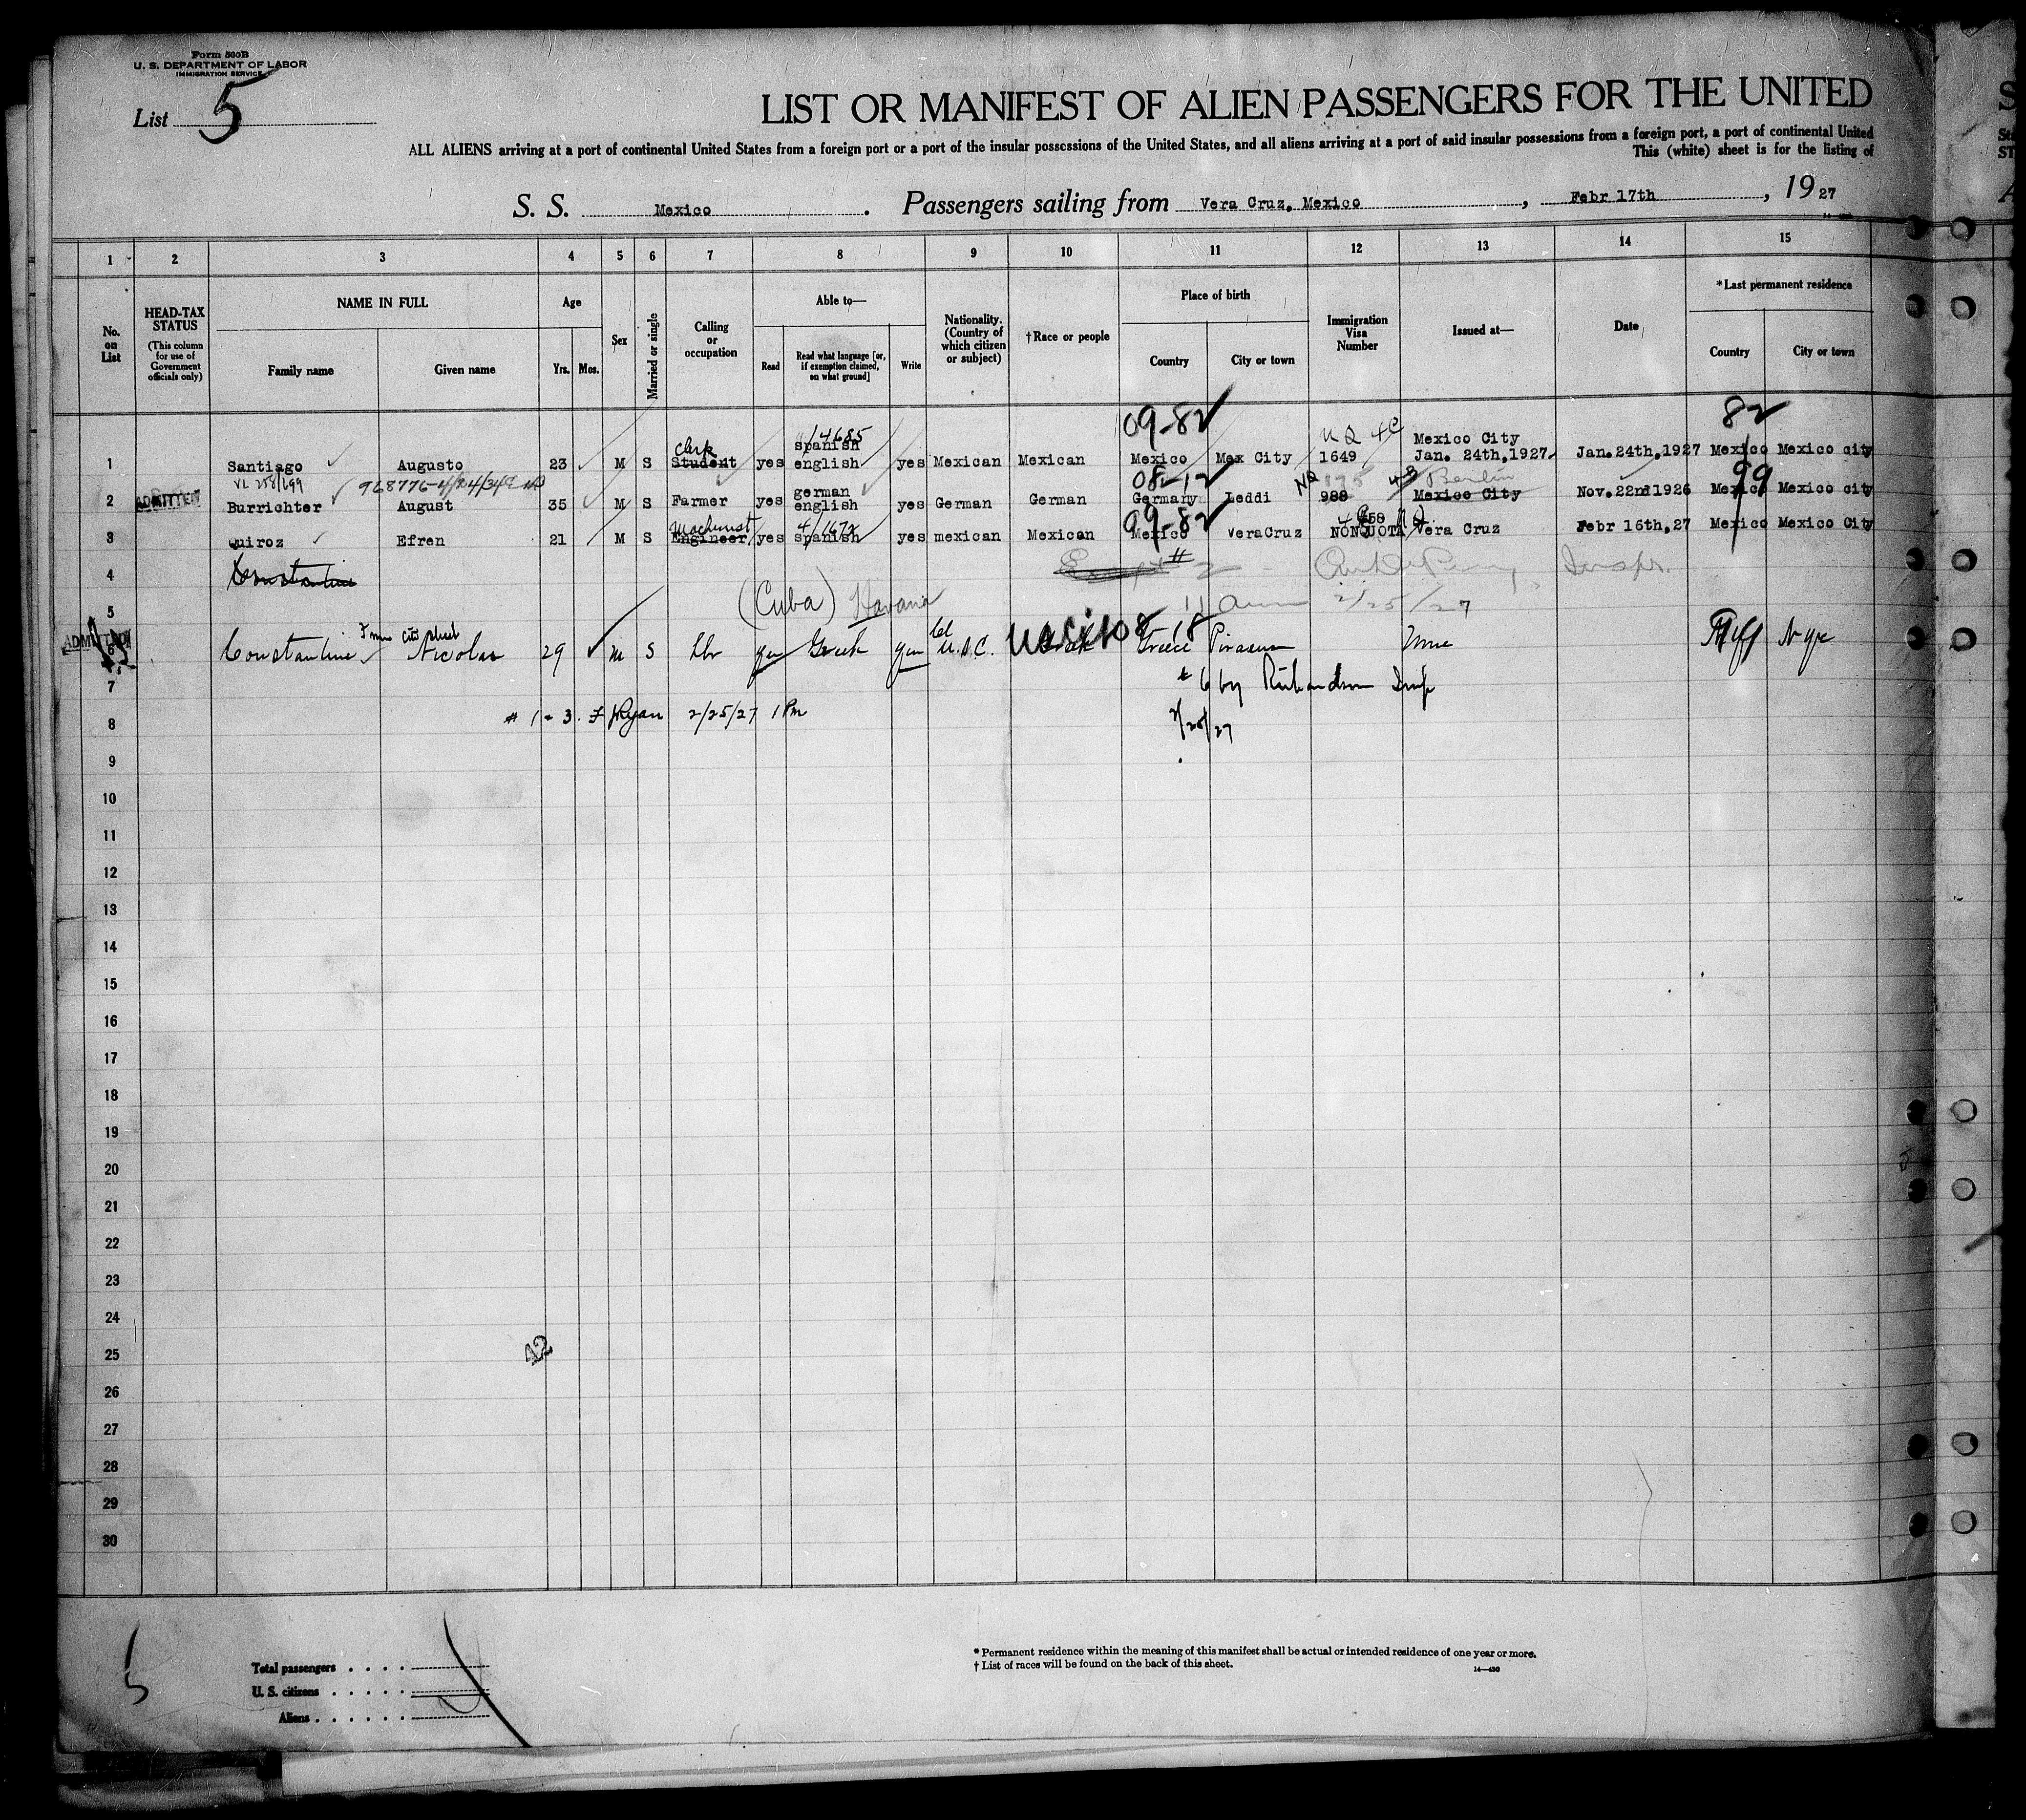 Form 500B
U. S. DEPARTMENT OF LABOR
IMMIGRATION SERVICE
List 5
LIST OR MANIFEST OF ALIEN PASSENGERS FOR THE UNITED
ALL ALIENS arriving at a port of continental United States from a foreign port or a port of the insular possessions of the United States, and all aliens arriving at a port of said insular possessions from a foreign port, a port of continental United
This (white) sheet is for the listing of
S. S. Mexico. Passengers sailing from Vera Cruz, Mexico, Febr 17th, 1927
1 2 3 4 5 6 7 8 9 10 11 12 13 14 15
No. on List
HEAD-TAX STATUS
(This column for use of Government officials only)
NAME IN FULL
Family name Given name
Age
Yrs. Mos.
Sex
Married or single
Calling or occupation
Able to—
Read
Read what language [or, if exemption claimed, on what ground]
Write
Nationality. (Country of which citizen or subject)
†Race or people
Place of birth
Country City or town
Immigration Visa Number
Issued at—
Date
*Last permanent residence
Country City or town
09-82 82
Clerk 14685 spanish NQ 4C Mexico City
1 Santiago Augusto 23 M S Student yes english yes Mexican Mexican Mexico Mex City 1649 Jan. 24th,1927 Jan.24th,1927 Mexico Mexico city
VL 258/699 968776-4/24/34 08-12 99
german NQ 43 Berlin
2 ADMITTED Burrichter August 35 M S Farmer yes english yes German German Germany Leddi 988 Mexico City Nov.22nd1926 Mexico Mexico city
Machinist 4/1672 99-82 458
3 Quiroz Efren 21 M S Engineer yes spanish yes mexican Mexican Mexico VeraCruz NONQUOTA Vera Cruz Febr 16th,27 Mexico Mexico City
4 Constantine # 2 Inspr.
5 (Cuba) Havana 11 am 2/25/27
ADMITTED
6 Constantine Nicolas 29 M S Lbr yes Greek yes U.S.C. 08-18 Greece Piraeus None NYC
7 #6 by Richardson Insp
8 # 1-3 F J Ryan 2/25/27 1 PM 2/25/27
9
10
11
12
13
14
15
16
17
18
19
20
21
22
23
24
25 42
26
27
28
29
30
5
Total passengers
U. S. citizens
Aliens
* Permanent residence within the meaning of this manifest shall be actual or intended residence of one year or more.
† List of races will be found on the back of this sheet.
14—430